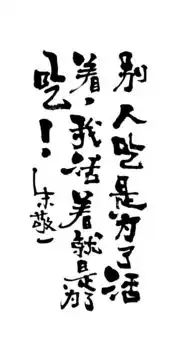 别人吃是为了活
着，我活着就是为了
吃！
朱敬一